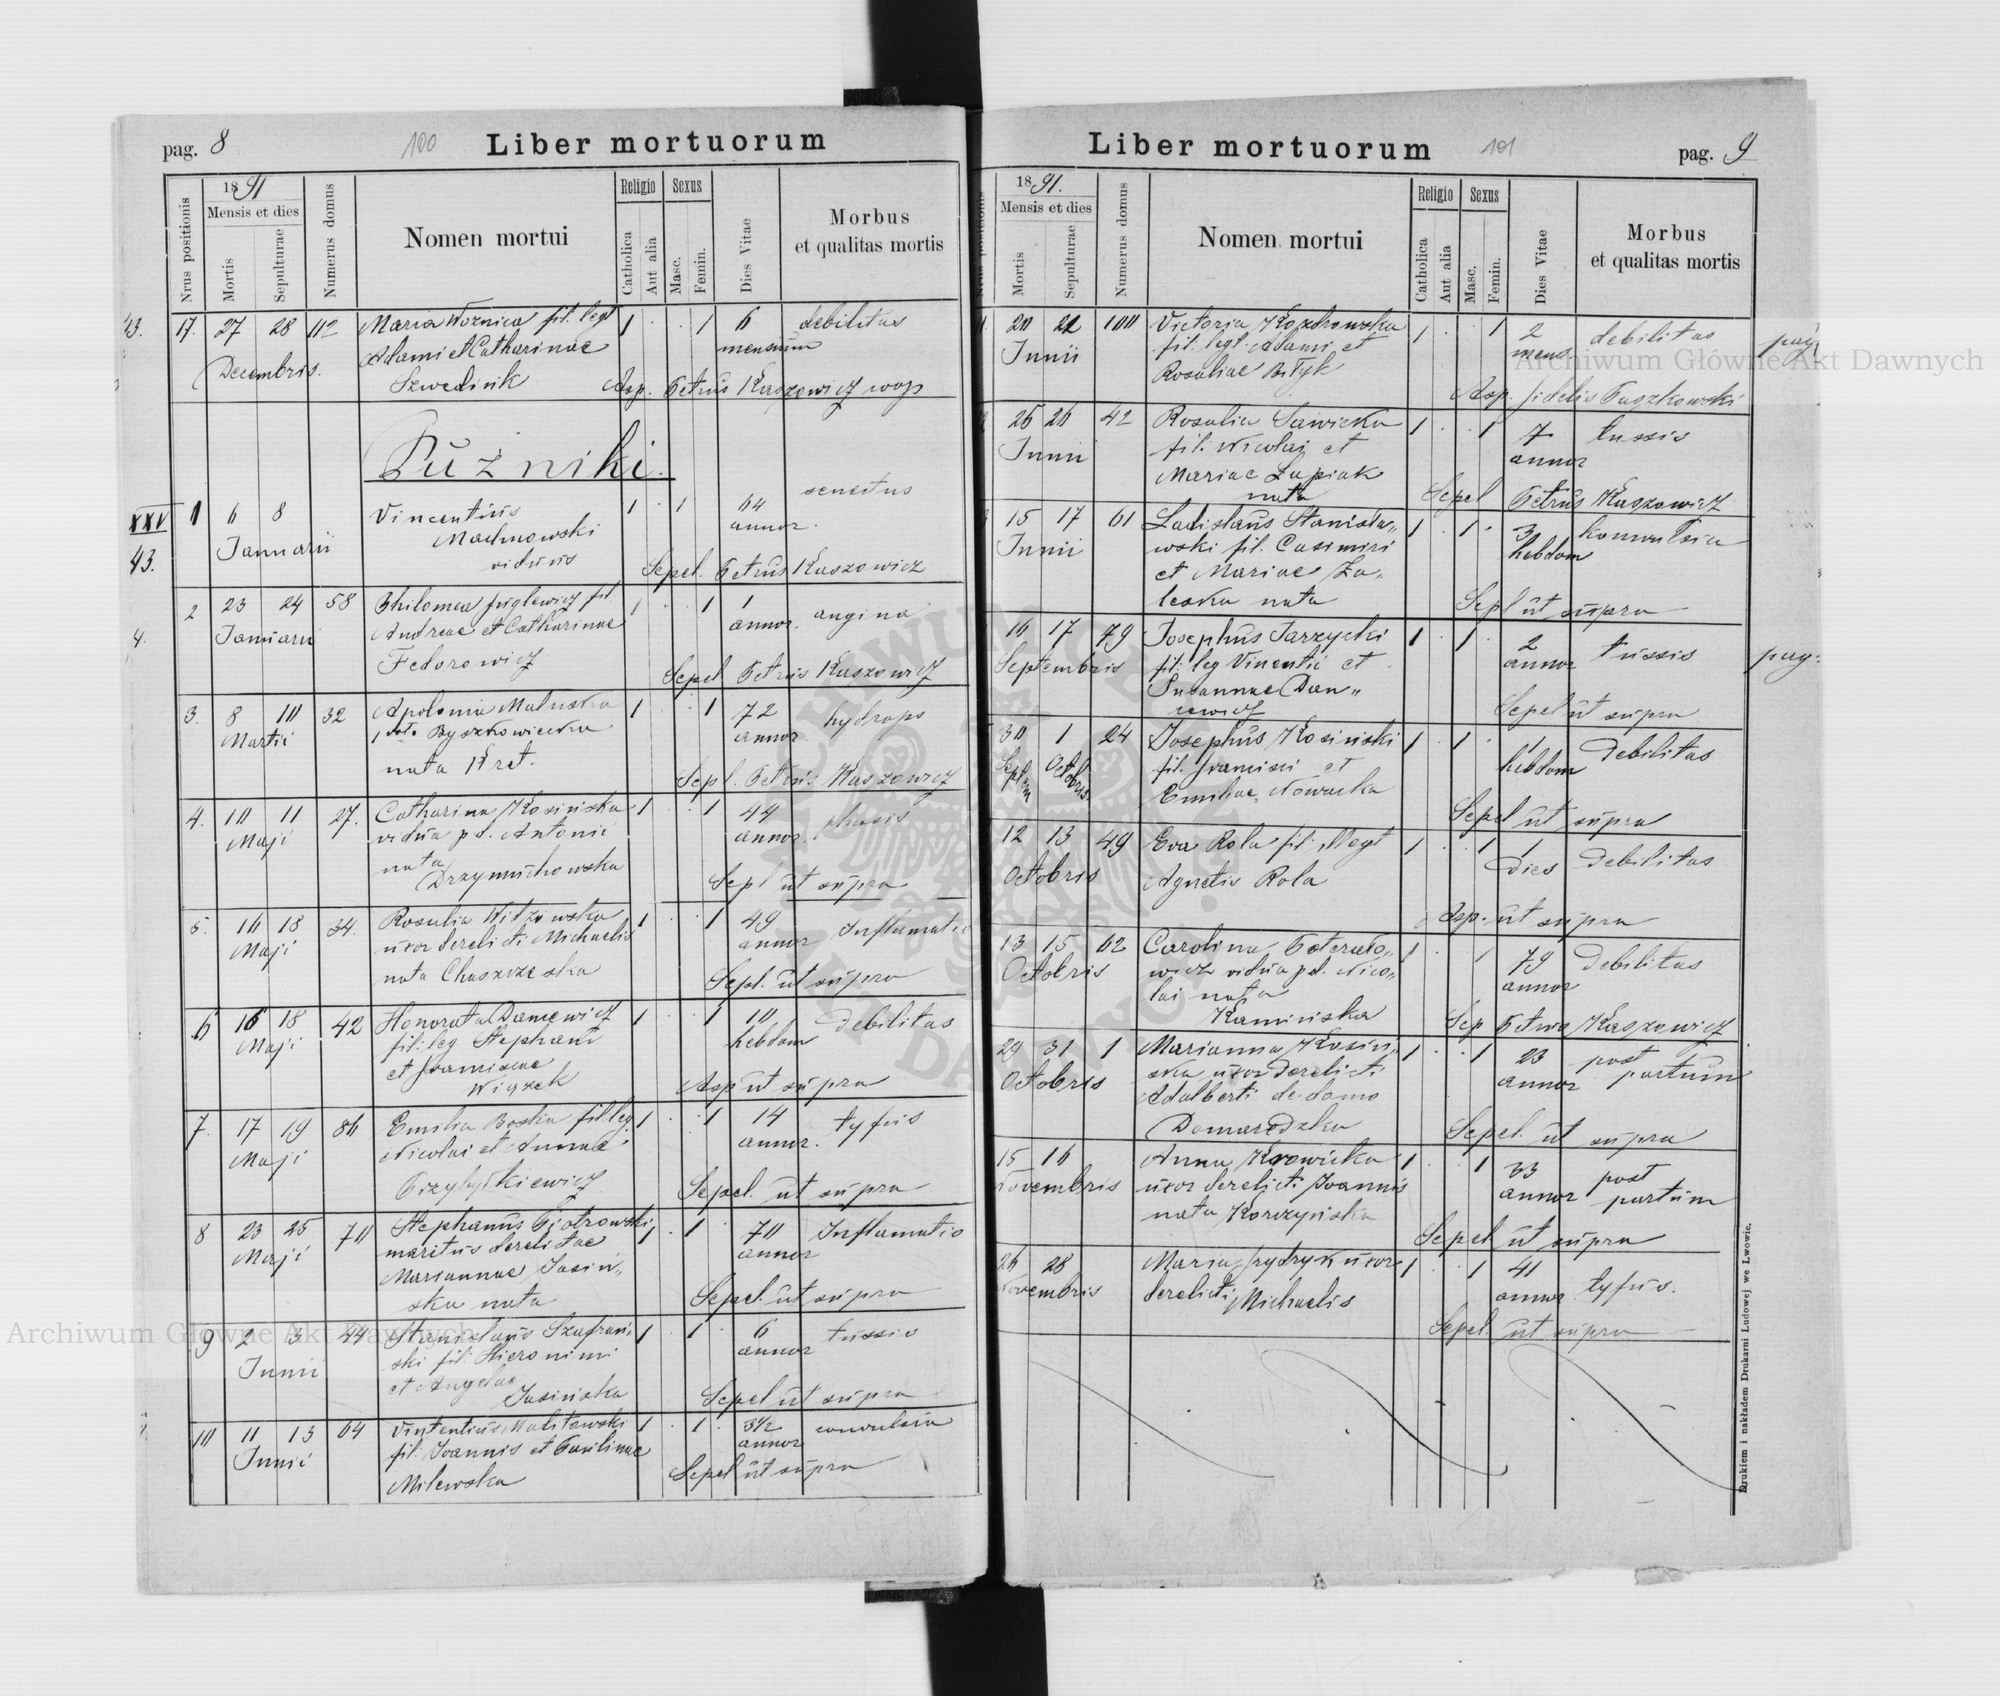 pag. 8
100
Liber mortuorum
Nrus positionis
1891
Mensis et dies
Mortis
Sepulturae
Numerus domus
Nomen mortui
Religio
Catholica
Aut alia
Sexus
Masc.
Femin.
Dies Vitae
Morbus
et qualitas mortis
17. 27 28 112 Maria Woznica fil. legt 1 . . 1 6 debilitas
Adami et Catharinae mensium
Decembris. Szwedink Asp. Petrus Kaszowicz
Pużniki.
XXV
43.
1 6 8 Vincentius 1 . 1 64 senectus
Januarii annor.
viduus Sepel. Petrus Kaszowicz
2 23 24 58 fil 1 . . 1 1 angina
Januarii Andreae et Catharinae annor.
Fedorowicz Sepel Petrus Kaszowicz
3. 8 10 32 Apolonia 1 . . 1 72 hydrops
Martii annor.
nata Kret. Sepl. Petrus Kaszowicz
4. 10 11 27. Catharina Kosińska 1 . . 1 44
Maji vidua p.d. Antonii annor.
nata
Drzymuchowska Sepl ut supra
5. 16 18 34. Rosalia 1 . . 1 49 Inflamatio
Maji uxor derelicti Michaelis annor
nata Sepl. ut supra
6 16 18 42 Honorata Daniewicz 1 . . 1 10 debilitas
Maji fil: leg Stephani hebdom
et Franciscae
Wiązek Asp ut supra
7. 17 19 86 Emilia fil leg 1 . . 1 14 tyfus
Maji Nicolai et Annae annor.
Przybyłkiewicz Sepel. ut supra
8 23 25 70 Stephanus Piotrowski 1 . 1 . 70 Inflamatio
Maji maritus derelictae annor
Mariannae Jasiń„
ska nata Sepel. ut supra
9 2 3 44 Stanislaus Szafrań 1 . 1 . 6 tussis
Junii ski fil: Hieronimi annor
et Angelae
Jasińska Sepel ut supra
10 11 13 64 1 . 1 . 3½ convulsia
Junii fil. Joannis et Paulinae annor
Milewska Sepel ut supra
Liber mortuorum
101
pag. 9
1891.
Mensis et dies
Mortis
Sepulturae
Numerus domus
Nomen mortui
Religio
Catholica
Aut alia
Sexus
Masc.
Femin.
Dies Vitae
Morbus
et qualitas mortis
20 22 100 Victoria Kozdrowska 1 . . 1 2 debilitas
Junii fil. legt. Adami et mens
Rosaliae Bełyk Asp. fidelis Paszkowski
26 26 42 Rosalia Sawicka 1 . . 1 7 tussis
Junii fil. Nicolai et annor
Mariae Łupiak
nata Sepel Petrus Kaszowicz
15 17 61 Ladislaus Stanisła„ 1 . 1 . 3 konwulsia
Junii wski fil. Casimiri hebdom
et Mariae Za„
leska nata Sepl ut supra
16 17 79 Josephus Jarzycki 1 . 1 . 2 tussis
Septembris fil: leg Vincentii et annor
Susannae Dan„
iewicz Sepel ut supra
30 1 24 Josephus Kosiński 1 . 1 . 1 debilitas
Septem Octobris fil. Francisci et hebdom
Emiliae Nowacka Sepel ut supra
12 13 49 Eva Rola fil. illegt 1 . . 1 1 debilitas
Octobris Agnetis Rola Dies
Asp. ut supra
13 15 62 Carolina 1 . . 1 79 debilitas
Octobris wicz vidua p.d. Nico„ annor
lai nata
Kamińska Sep Petrus Kaszowicz
29 31 1 Marianna Kosiń„ 1 . . 1 23 post
Octobris ska uxor derelicti annor partum
Adalberti de domo
Domaredzka Sepel. ut supra
15 16 Anna Krowicka 1 . . 1 33 post
Novembris uxor derelicti Joannis annor partum
nata Korczyńska Sepel ut supra
26 28 Maria Frydryk uxor 1 . . 1 41 tyfus.
Novembris derelicti Michaelis annor
Sepel ut supra
Drukiem i nakładem Drukarni Ludowej we Lwowie.
Archiwum Główne Akt Dawnych
Archiwum Główne Akt Dawnych